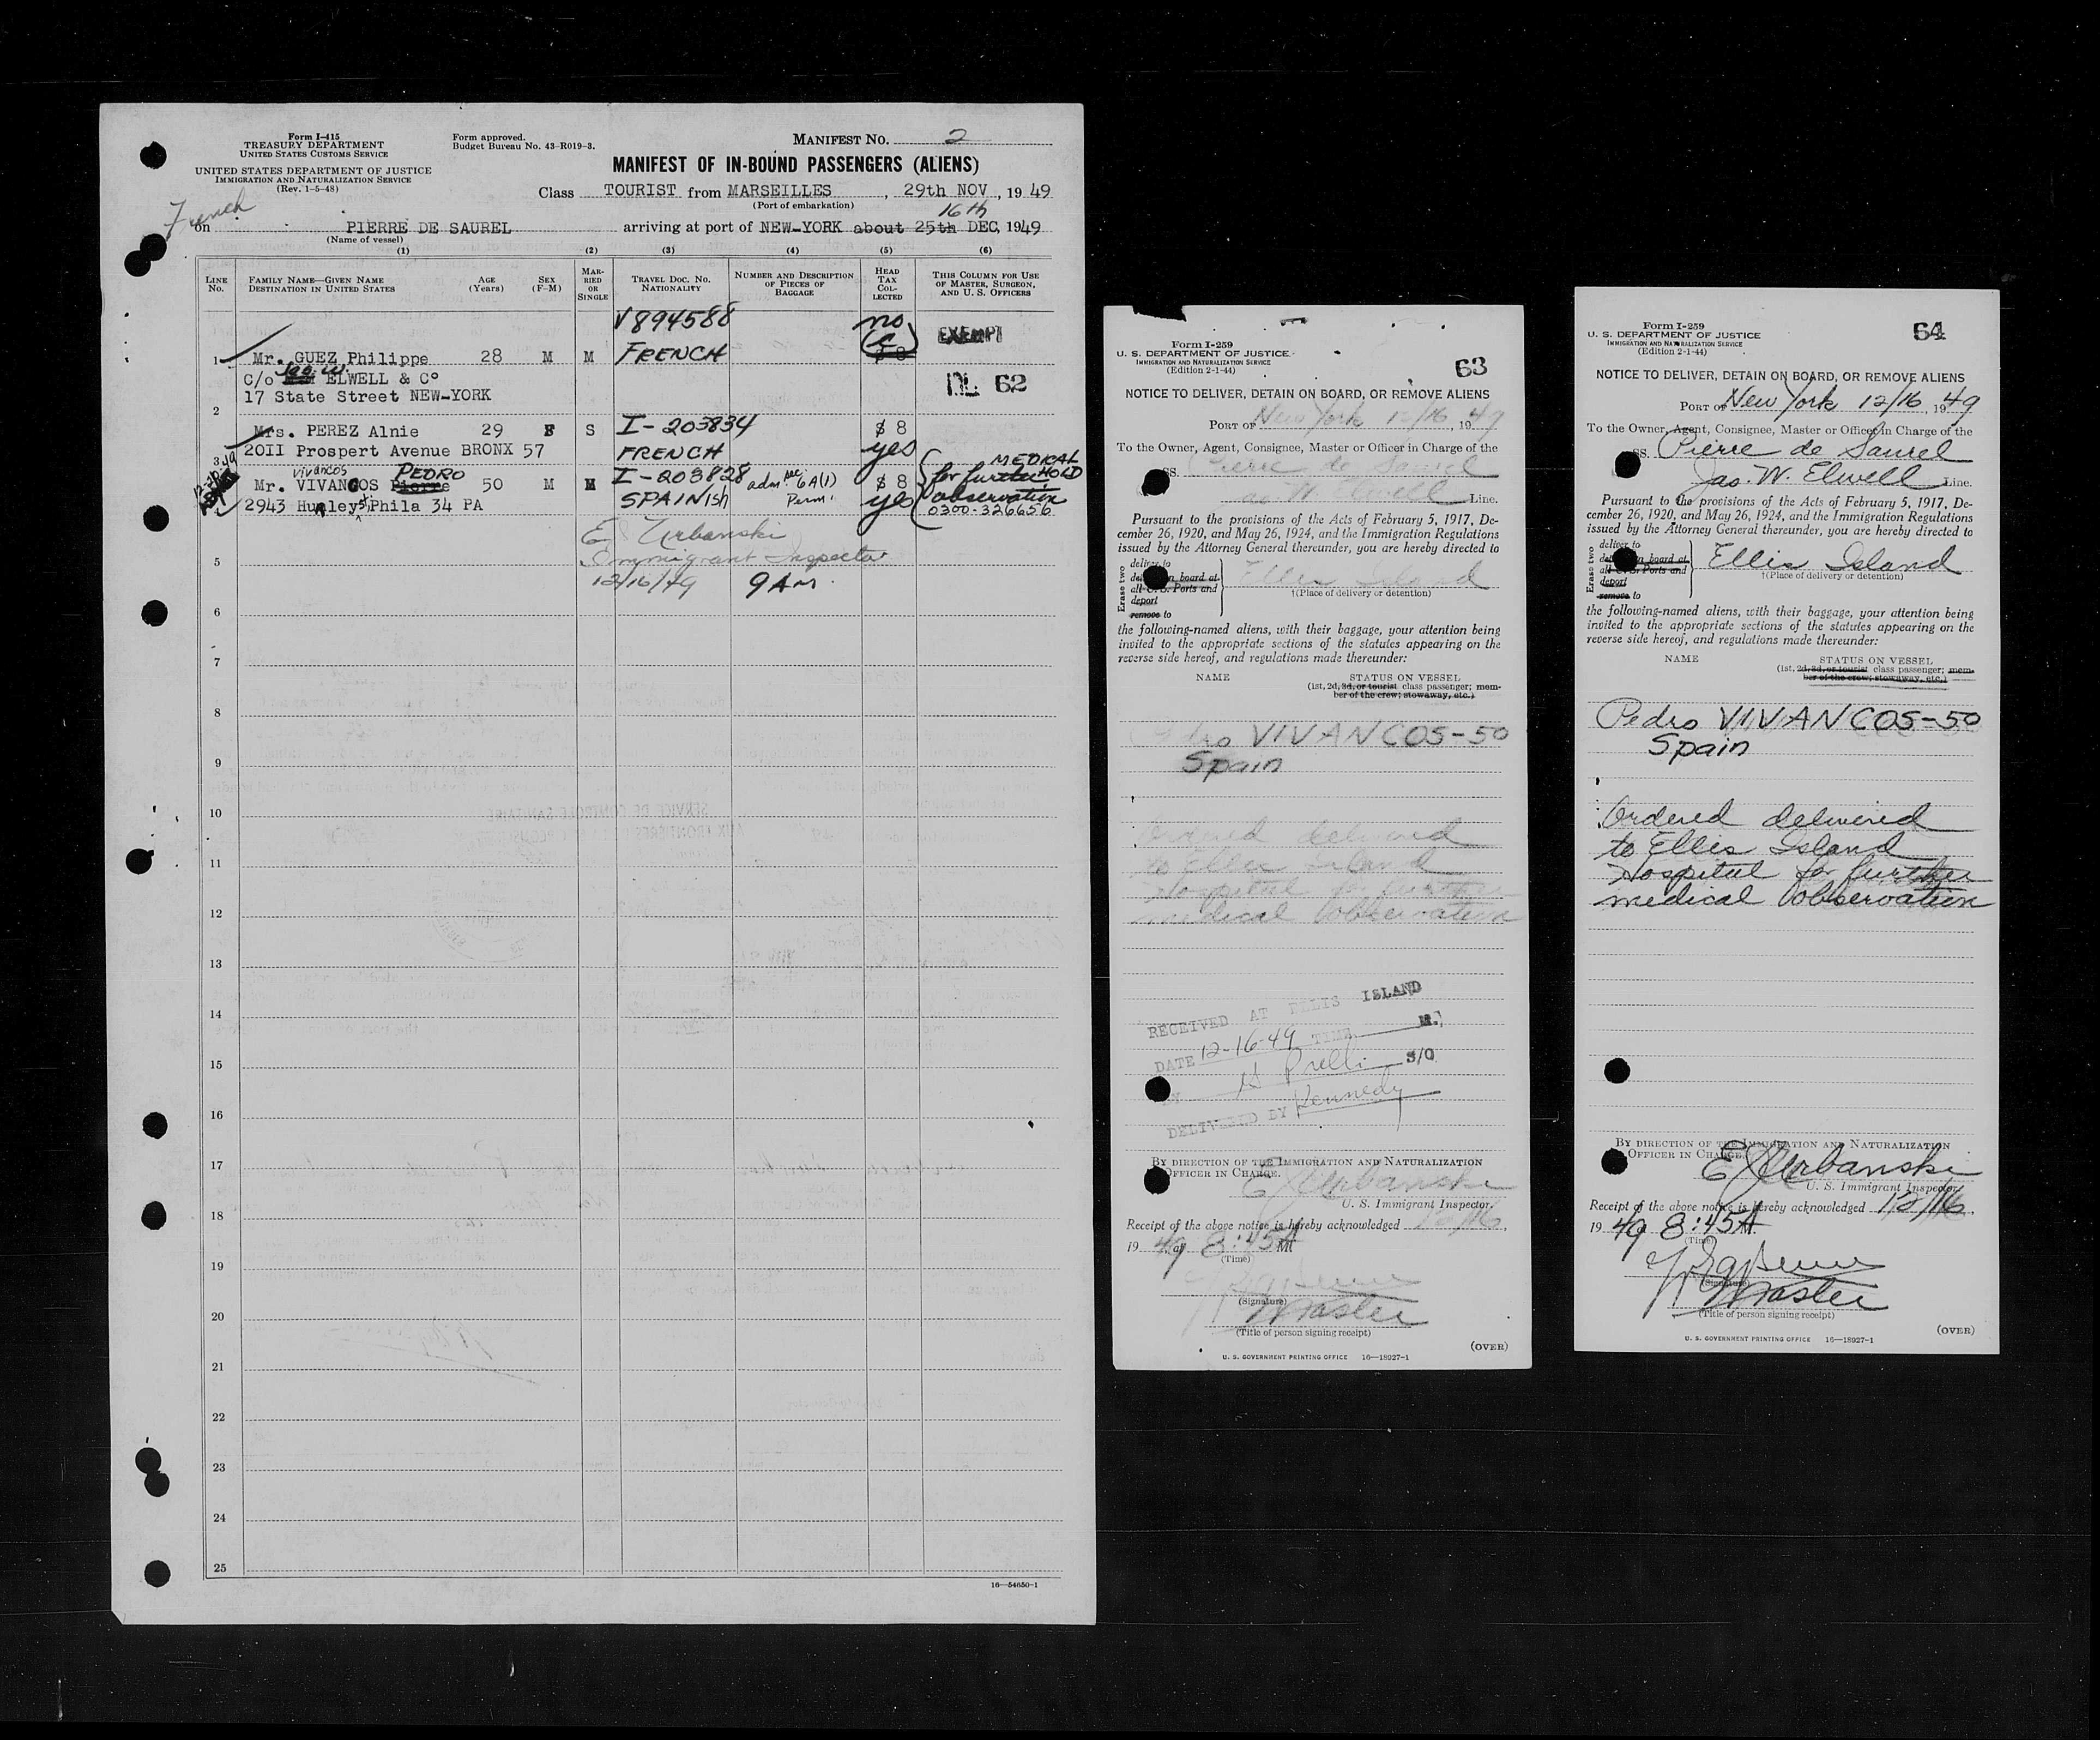 Form I-415
TREASURY DEPARTMENT
UNITED STATES CUSTOMS SERVICE
UNITED STATES DEPARTMENT OF JUSTICE
IMMIGRATION AND NATURALIZATION SERVICE
(Rev. 1-5-48)
Form approved.
Budget Bureau No. 43-R019-3.
MANIFEST NO. 2
MANIFEST OF IN-BOUND PASSENGERS (ALIENS)
Class TOURIST from MARSEILLES, 29th NOV, 1949
(Port of embarkation)
French
16th
on PIERRE DE SAUREL arriving at port of NEW-YORK about 25th DEC, 1949
(Name of vessel)
(1) (2) (3) (4) (5) (6)
LINE No.
FAMILY NAME—GIVEN NAME
DESTINATION IN UNITED STATES
AGE (Years)
SEX (F-M)
MARRIED OR SINGLE
TRAVEL DOC. NO.
NATIONALITY
NUMBER AND DESCRIPTION OF PIECES OF BAGGAGE
HEAD TAX COLLECTED
THIS COLUMN FOR USE OF MASTER, SURGEON, AND U. S. OFFICERS
V894588 no EXEMPT
1 Mr. GUEZ Philippe 28 M M FRENCH $ 8
C/o Jas. W. ELWELL & C° NL 62
17 State Street NEW-YORK
2
Mrs. PEREZ Alnie 29 F S I-203834 $ 8
2011 Prospert Avenue BRONX 57 FRENCH yes
3
vivancos PEDRO I-203828 adm. 6A(1) MEDICAL HOLD
Mr. VIVANCOS Pierre 50 M M SPANish Perm. $ 8 for further observation
2943 Hurley St Phila 34 PA yes 0300-326656
E Urbanski
Immigrant Inspector
12/16/49 9 AM.
5
6
7
8
9
10
11
12
13
14
15
16
17
18
19
20
21
22
23
24
25
16—54650-1
Form I-259
U. S. DEPARTMENT OF JUSTICE
IMMIGRATION AND NATURALIZATION SERVICE
(Edition 2-1-44)
63
NOTICE TO DELIVER, DETAIN ON BOARD, OR REMOVE ALIENS
PORT OF New York 12/16, 1949
To the Owner, Agent, Consignee, Master or Officer in Charge of the
SS. Pierre de Saurel
Jas W. Elwell Line.
Pursuant to the provisions of the Acts of February 5, 1917, De-
cember 26, 1920, and May 26, 1924, and the Immigration Regulations
issued by the Attorney General thereunder, you are hereby directed to
Erase two
deliver to
detain on board at
all U. S. Ports and
deport
remove to
Ellis Island
†(Place of delivery or detention)
the following-named aliens, with their baggage, your attention being
invited to the appropriate sections of the statutes appearing on the
reverse side hereof, and regulations made thereunder:
NAME STATUS ON VESSEL
(1st, 2d, 3d, or tourist class passenger; mem-
ber of the crew; stowaway, etc.)
Pedro VIVANCOS-50
Spain
Ordered delivered
to Ellis Island
Hospital for further
medical observation
RECEIVED AT ELLIS ISLAND
DATE 12-16-49 TIME M.
BY H Prelli S/O
DELIVERED BY Kennedy
BY DIRECTION OF THE IMMIGRATION AND NATURALIZATION
OFFICER IN CHARGE.
E Urbanski
U. S. Immigrant Inspector.
Receipt of the above notice is hereby acknowledged 12/16,
1949 8:45A M
(Time)
(Signature)
Master
(Title of person signing receipt)
(OVER)
U. S. GOVERNMENT PRINTING OFFICE 16—18927-1
Form I-259
U. S. DEPARTMENT OF JUSTICE
IMMIGRATION AND NATURALIZATION SERVICE
(Edition 2-1-44)
64
NOTICE TO DELIVER, DETAIN ON BOARD, OR REMOVE ALIENS
PORT OF New York 12/16, 1949
To the Owner, Agent, Consignee, Master or Officer in Charge of the
SS. Pierre de Saurel
Jas. W. Elwell Line.
Pursuant to the provisions of the Acts of February 5, 1917, De-
cember 26, 1920, and May 26, 1924, and the Immigration Regulations
issued by the Attorney General thereunder, you are hereby directed to
Erase two
deliver to
detain on board at
all U. S. Ports and
deport
remove to
Ellis Island
†(Place of delivery or detention)
the following-named aliens, with their baggage, your attention being
invited to the appropriate sections of the statutes appearing on the
reverse side hereof, and regulations made thereunder:
NAME STATUS ON VESSEL
(1st, 2d, 3d, or tourist class passenger; mem-
ber of the crew; stowaway, etc.)
Pedro VIVANCOS-50
Spain
Ordered delivered
to Ellis Island
Hospital for further
medical observation
BY DIRECTION OF THE IMMIGRATION AND NATURALIZATION
OFFICER IN CHARGE.
E Urbanski
U. S. Immigrant Inspector.
Receipt of the above notice is hereby acknowledged 12/16,
1949 8:45A
(Time)
(Signature)
Master
(Title of person signing receipt)
(OVER)
U. S. GOVERNMENT PRINTING OFFICE 16—18927-1